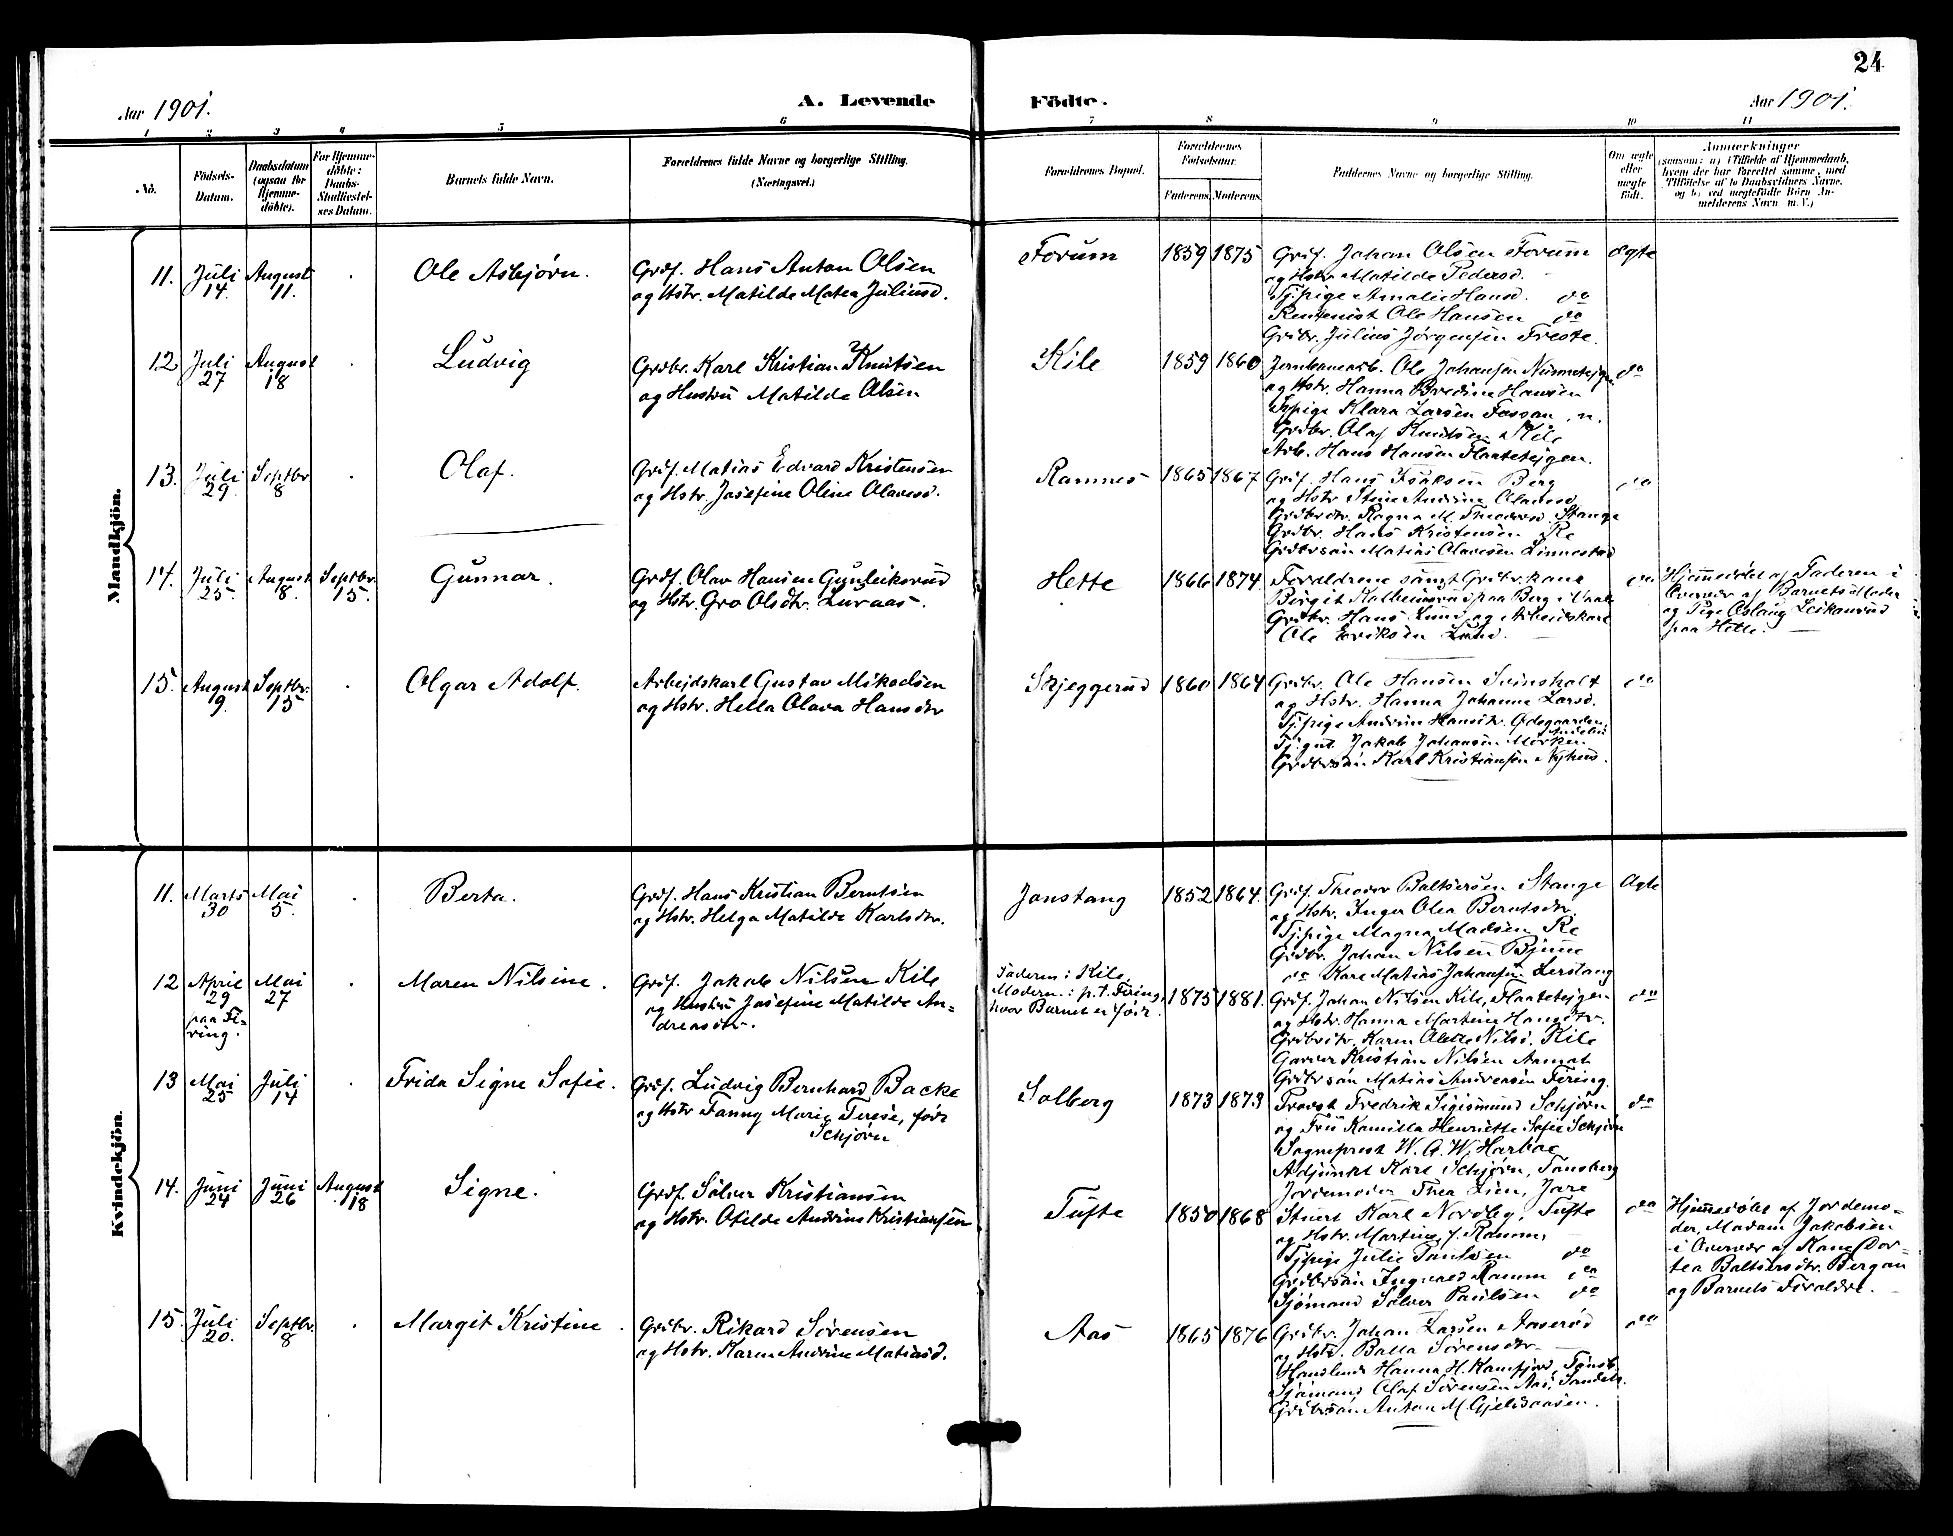 24
Aar 1901.
A. Levende
Födte.
Aar 1901.
1 2 3 4 5 6 7 8 9 10 11
No.
Födsels-
Datum.
Daabsdatum
(ogsaa for
Hjemme-
döbte).
For Hjemme-
döbte:
Daabs-
Stadfæstel-
ses Datum.
Barnets fulde Navn.
Forældrenes fulde Navne og borgerlige Stilling.
(Næringsvei.)
Forældrenes Bopæl.
Forældrenes
Födselsaar.
Faderens. Moderens.
Faddernes Navne og borgerlige Stilling.
Om ægte
eller
uægte
födt.
Anmærkninger
(saasom: a) i Tilfælde af Hjemmedaab,
hvem der har forrettet samme, med
Tilföielse af to Daabsvidners Navne,
og b) ved uægtefödte Börn An-
melderens Navn m. V.)
Mandkjön.
11. Juli
14.
August
11.
Ole Asbjørn.
Grdf. Hans Anton Olsen
og Hstr. Matilde Matea Juliusd.
Forum
1859 1875
Grdf. Johan Olsen Forum
og Hstr. Matilde Pedersd.
Tj.pige Amalie Hansd. do
Ole Hansen do
Grdbr. Julius Jørgensen Freste.
ægte
12 Juli
27
August
18
Ludvig
Grdbr. Karl Kristian Knutsen
og Hustru Matilde Olsen
Kile
1859 1860
Ole Johansen
og Hstr. Hanna Bredine Hansen
Tj.pige Klara Larsen
Grdbr. Olaf Knutsen Kile
Arb. Hans Hansen Flaatetejgen.
do
13. Juli
29.
Septbr.
8
Olaf.
Grdf. Matias Edvard Kristensen
og Hstr. Josefine Oline Olavesd.
Ramnes
1865 1867
Grdf. Hans Isaksen Berg
og Hstr. Stine Andrine Olavesd.
Grdbrdtr. Ragna M. Theodorsd. Stange
Grdbr. Hans Kristensen Re
Grdbrsøn Matias Olavesen Linnestad
do
14. Juli
25.
August
8.
Septbr.
15.
Gunnar.
Grdf. Olav Hansen Gunleiksrud
og Hstr. Gro Olsdtr. Luraas.
Hette
1866 1874
Forældrene samt Grdbr.kone
Birgit paa Berg i Vaale
Grdbr. Hans Lund og Arbeidskarl
Ole Eriksen Lund.
do
Hjemmedøbt af Faderen i
Overvær af Barnets Moder
og Pige Aslaug Leikanrud
paa Hette.
15. August
9.
Septbr.
15
Olgar Adolf.
Arbejdskarl Gustav Mikaelsen
og Hstr. Hella Olava Hansdtr
Skjeggerud
1860 1864
Grdbr. Ole Hansen Svinsholt
og Hstr. Hanna Johanne Larsd.
Tj.pige Andrine Hansdtr. Ødegaarden,
Andebu
Tj.gut. Jakob Johansen Mørken
Grdbrsøn Karl Kristiansen Nyhus.
do
Kvindekjön.
11. Marts
30
Mai
5.
Berta.
Grdf. Hans Kristian Berntsen
og Hstr. Helga Matilde Karlsdtr.
Jonstang
1852 1864.
Grdf. Theodor Baltsersen Stange
og Hstr. Inger Olea Berntsdtr.
Tj.pige Magna Madsen Re
Grdbr. Johan Nilsen Bjune
do Karl Matias Johansen Lerstang
Ægte
12 April
29
paa Fi-
ring.
Mai
27
Maren Nilsine.
Grdf. Jakob Nilsen Kile
og Hustru Josefine Matilde An-
dreasdtr.
Faderen: Kile
Moderen: p.t. Firing,
hvor Barnet er født.
1875 1881.
Grdf. Johan Nilsen Kile, Flaatetejgen
og Hstr. Hanna Martine Hansdtr.
Grdbrdtr. Karen Olette Nilsd. Kile
Garver Kristian Nilsen Aamot
Grdbrsøn Matias Andreasen Firing.
do
13 Mai
25
Juli
14
Frida Signe Sofie.
Grdf. Ludvig Bernhard Backe
og Hstr Fanny Marie Terese, født
Schjørn
Solberg
1873 1873
Provst Fredrik Sigismund Schjørn
og Fru Kamilla Henriette Sofie Schjørn
Sogneprest W. A. W. Harboe
Adjunkt Karl Schjørn, Tønsberg
Jordemoder Thea Lien, Jare
do
14. Juni
24
Juni
26
August
18
Signe.
Grdf. Sølver Kristiansen
og Hstr. Otilde Andrine Kristiansen
Tufte
1850 1868
Stuert Karl Nordby, Tufte
og Hstr. Martine, f. Ramm,
Tj.pige Julie Paulsen do
Grdbrsøn Ingvald Ramm do
Sjømand Sølver Paulsen do
do
Hjemmedøbt af Jordemo-
der, Madam Jakobsen
i Overvær af Kone Dor-
tea Baltsersdtr. Bergan
og Barnets Forældre.
15. Juli
20.
Septbr.
8
Margit Kristine.
Grdbr. Rikard Sørensen
og Hstr. Karen Andrine Matiasd.
Aas
1865 1876
Grdbr. Johan Larsen Aaserød
og Hstr. Balla Sørensdtr.
Handlende Hanna H. Kamfjord, Tønsb.
Sjømand Olaf Sørensen Aas, Sandeh.
Grdbrsøn Anton M. Gjelsaasen.
do